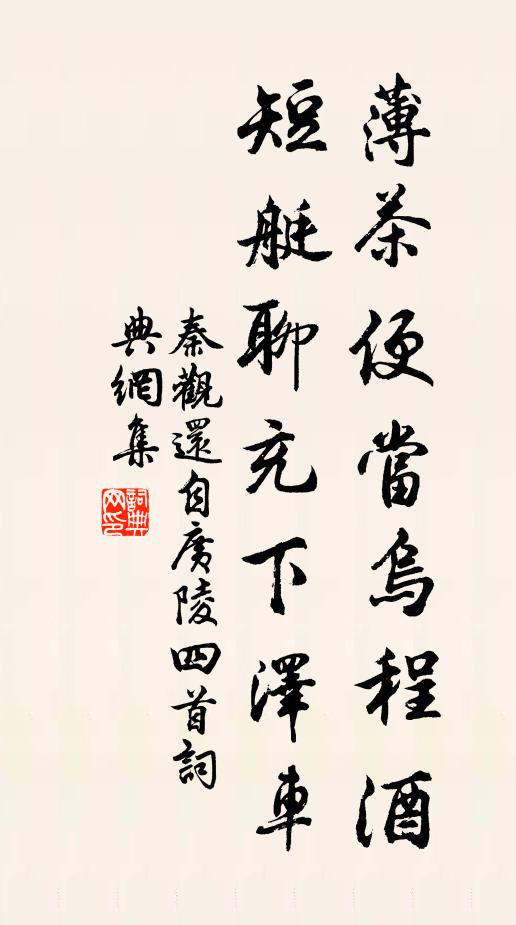 薄茶便當烏程酒
短艇聊充下澤車
秦觀還自廣陵四首詞
典網集
詞典
网印